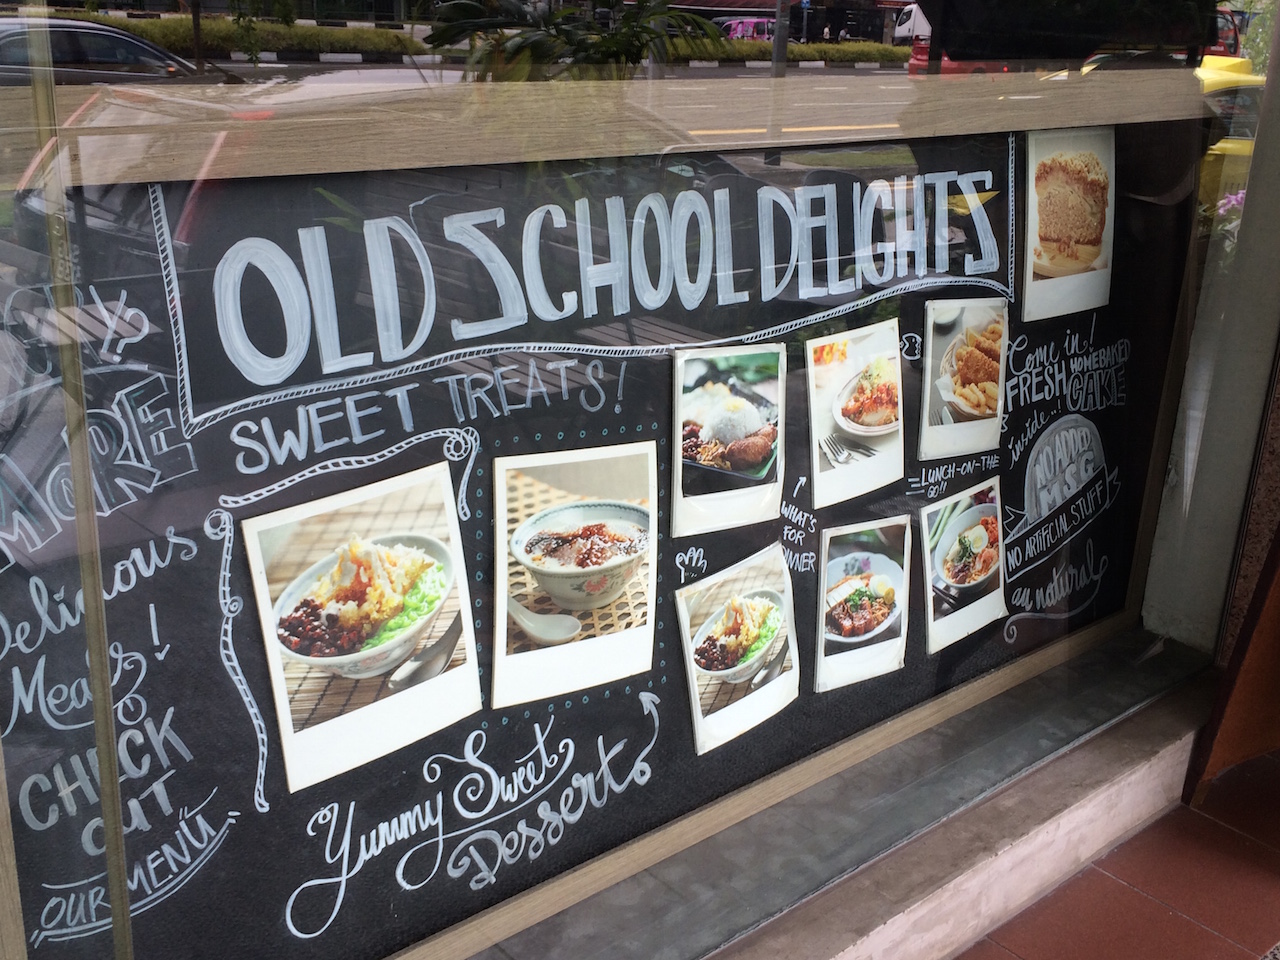 OLD SCHOOL DELIGHTS
SWEET TREATS!
MORE
Delicious
Meals!
CHECK
OUT
OUR MENU
Yummy Sweet
Dessert
WHAT'S
FOR
DINNER
LUNCH-ON-THE
GO!!
Come in!
FRESH HOMEBAKED
CAKE
inside!
NO ADDED
MSG
NO ARTIFICIAL STUFF
au naturale